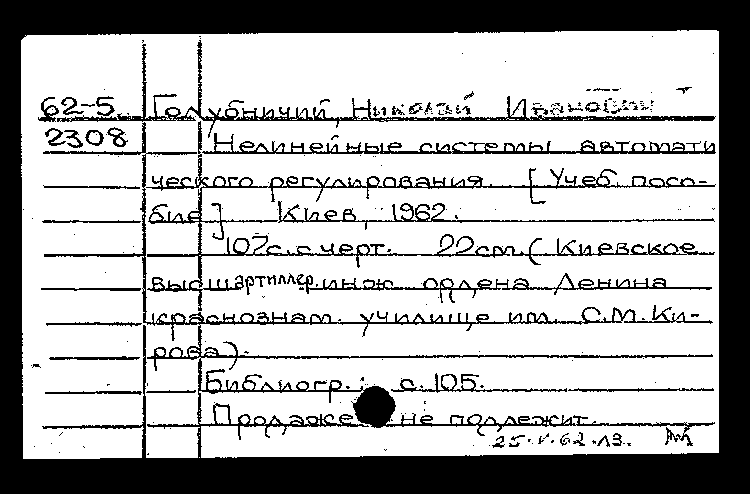 62-5. Голубничий, Николай Иванович
2308 Нелинейные системы автомати
ческого регулирования. [Учеб. посо-
бие] Киев, 1962.
107с. с черт. 22см. (Киевское
высш артиллер. инж ордена Ленина
краснознам. училище им. С.М. Ки-
рова).
Библиогр.: с. 105.
Продаже не подлежит.
25.V.62.